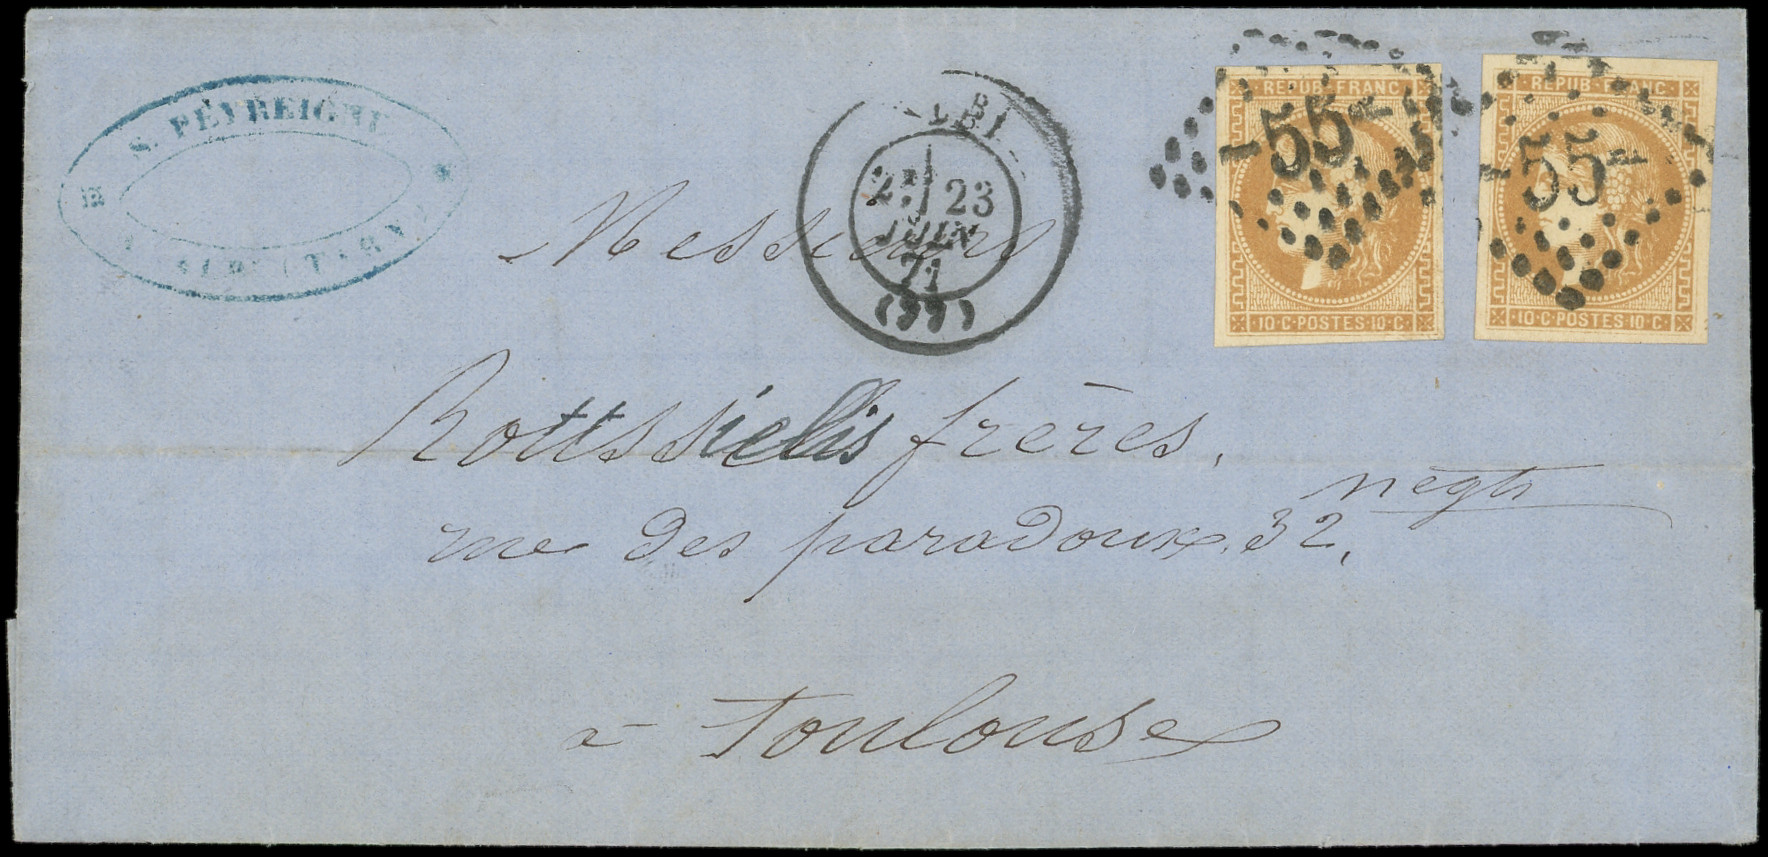 S. PEYREIGNE
LBI
2E 23
JUIN
71
(77)
REPUB. FRANC
55
10·C·POSTES·10·C
REPUB·FRANC·
55
10·C·POSTES·10·C·
Messieurs
frères,
négts
rue des paradoux, 32,
à Toulouse